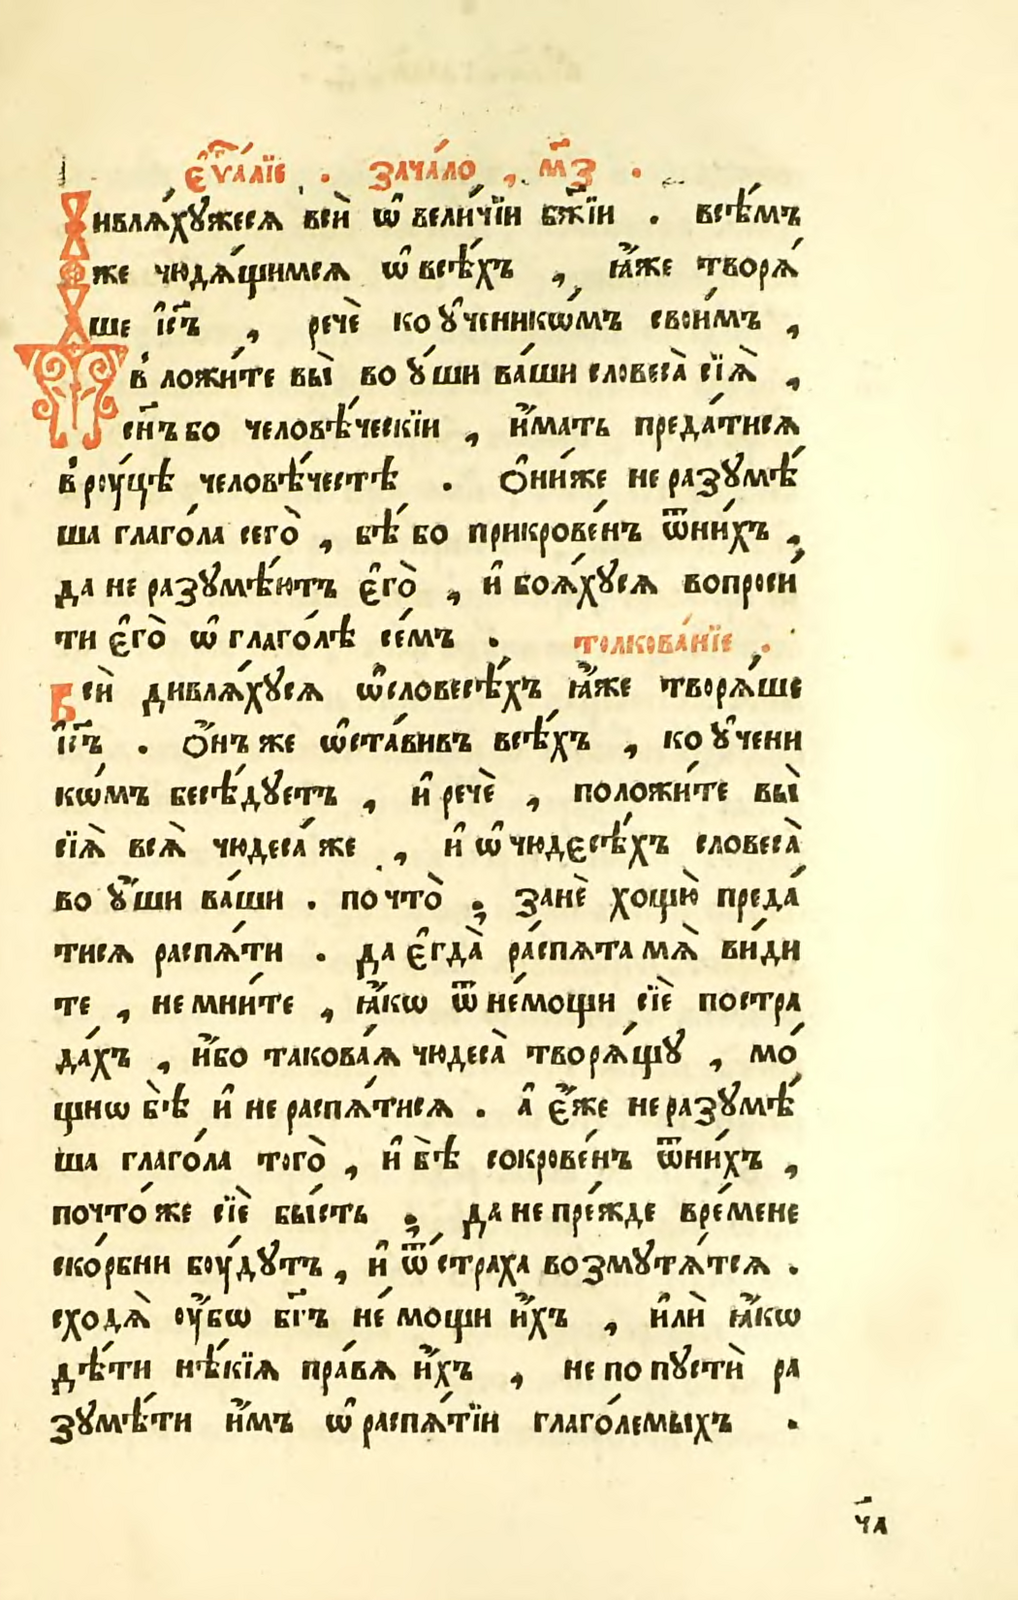 є҆ѵⷢ҇а́лїе . зача́ло , м҃з .
Дивлѧ́хꙋжесѧ вси̑ ѡ҆ вели́чїи бж҃їи . всѣ́мъ
же чюдѧ́щимсѧ ѡ҆ всѣ́хъ , ꙗ҆́же творѧ́
ше і҆с҃ъ , речѐ ко ᲂу҆ченикѡ́мъ свои́мъ ,
вложи́те вы̀ во ᲂу҆́ши ва́ши словеса̀ сїѧ̀ ,
сн҃ъ бо человѣ́ческїи , и҆́мать преда́тисѧ
в рꙋ́цѣ человѣ́честѣ . Ѻ҆ни́же не разꙋмѣ́
ша глаго́ла сего̀ , бѣ́ бо прикрове́нъ ѿни́хъ ,
да не разꙋмѣ́ютъ є҆го̀ , и҆ боѧ́хꙋсѧ вопроси́
ти є҆го̀ ѡ҆ глаго́лѣ се́мъ . толкова́нїе .
Вси̑ дивлѧ́хꙋсѧ ѡ҆словесѣ́хъ ꙗ҆́же творѧ́ше
і҆с҃ъ . Ѻ҆́нъ же ѡ҆ста́вивъ всѣ́хъ , ко ᲂу҆чени
кѡ́мъ бесѣ́дꙋетъ , и҆ речѐ , положи́те вы̀
сїѧ̀ всѧ̀ чюдеса́ же , и҆ ѡ҆ чюдєсѣ́хъ словеса̀
во ᲂу҆́ши ва́ши . почто̀ ; занѐ хощю̀ преда́
тисѧ распѧ́ти . да є҆гда̀ ра́спѧта мѧ̀ ви́ди
те , не мни́те , ꙗ҆́кѡ ѿ не́мощи сїѐ постра
да́хъ , и҆́бо такова́ѧ чюдеса̀ творѧ́щꙋ , мо́
щно бѣ̀ и҆ не распѧ́тисѧ . а҆ є҆́же не разꙋмѣ́
ша глаго́ла того̀ , и҆ бѣ̀ сокрове́нъ ѿни́хъ ,
почто́ же сїѐ бы́сть ; да не пре́жде вре́мене
ско́рбни бꙋ́дꙋтъ , и҆ ѿ стра́ха возмꙋтѧ́тсѧ .
сходѧ̀ ᲂу҆́бѡ бг҃ъ не́мощи и҆́хъ , и҆лѝ ꙗ҆́кѡ
дѣ́ти нѣ́кїѧ пра́вѧ и҆́хъ , не попꙋстѝ ра
зꙋмѣ́ти и҆́мъ ѡ҆ распѧ́тїи глаго́лемыхъ .
ч҃а